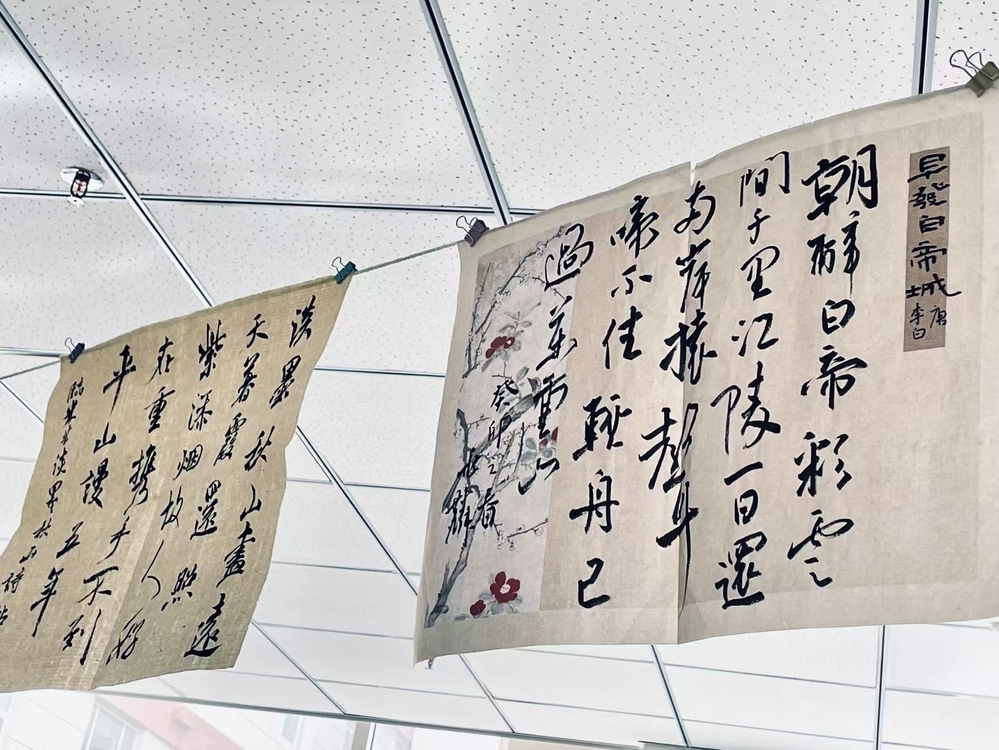 早發白帝城
唐
李白
朝辭白帝彩雲
間千里江陵一日還
兩岸猿聲
啼不住輕舟已
過萬重山
癸卯之春
淡墨秋山畫遠
天暮霞還照
紫深烟故人好
在重攜手不到
平山漫五年
臨米芾淡墨秋山詩帖